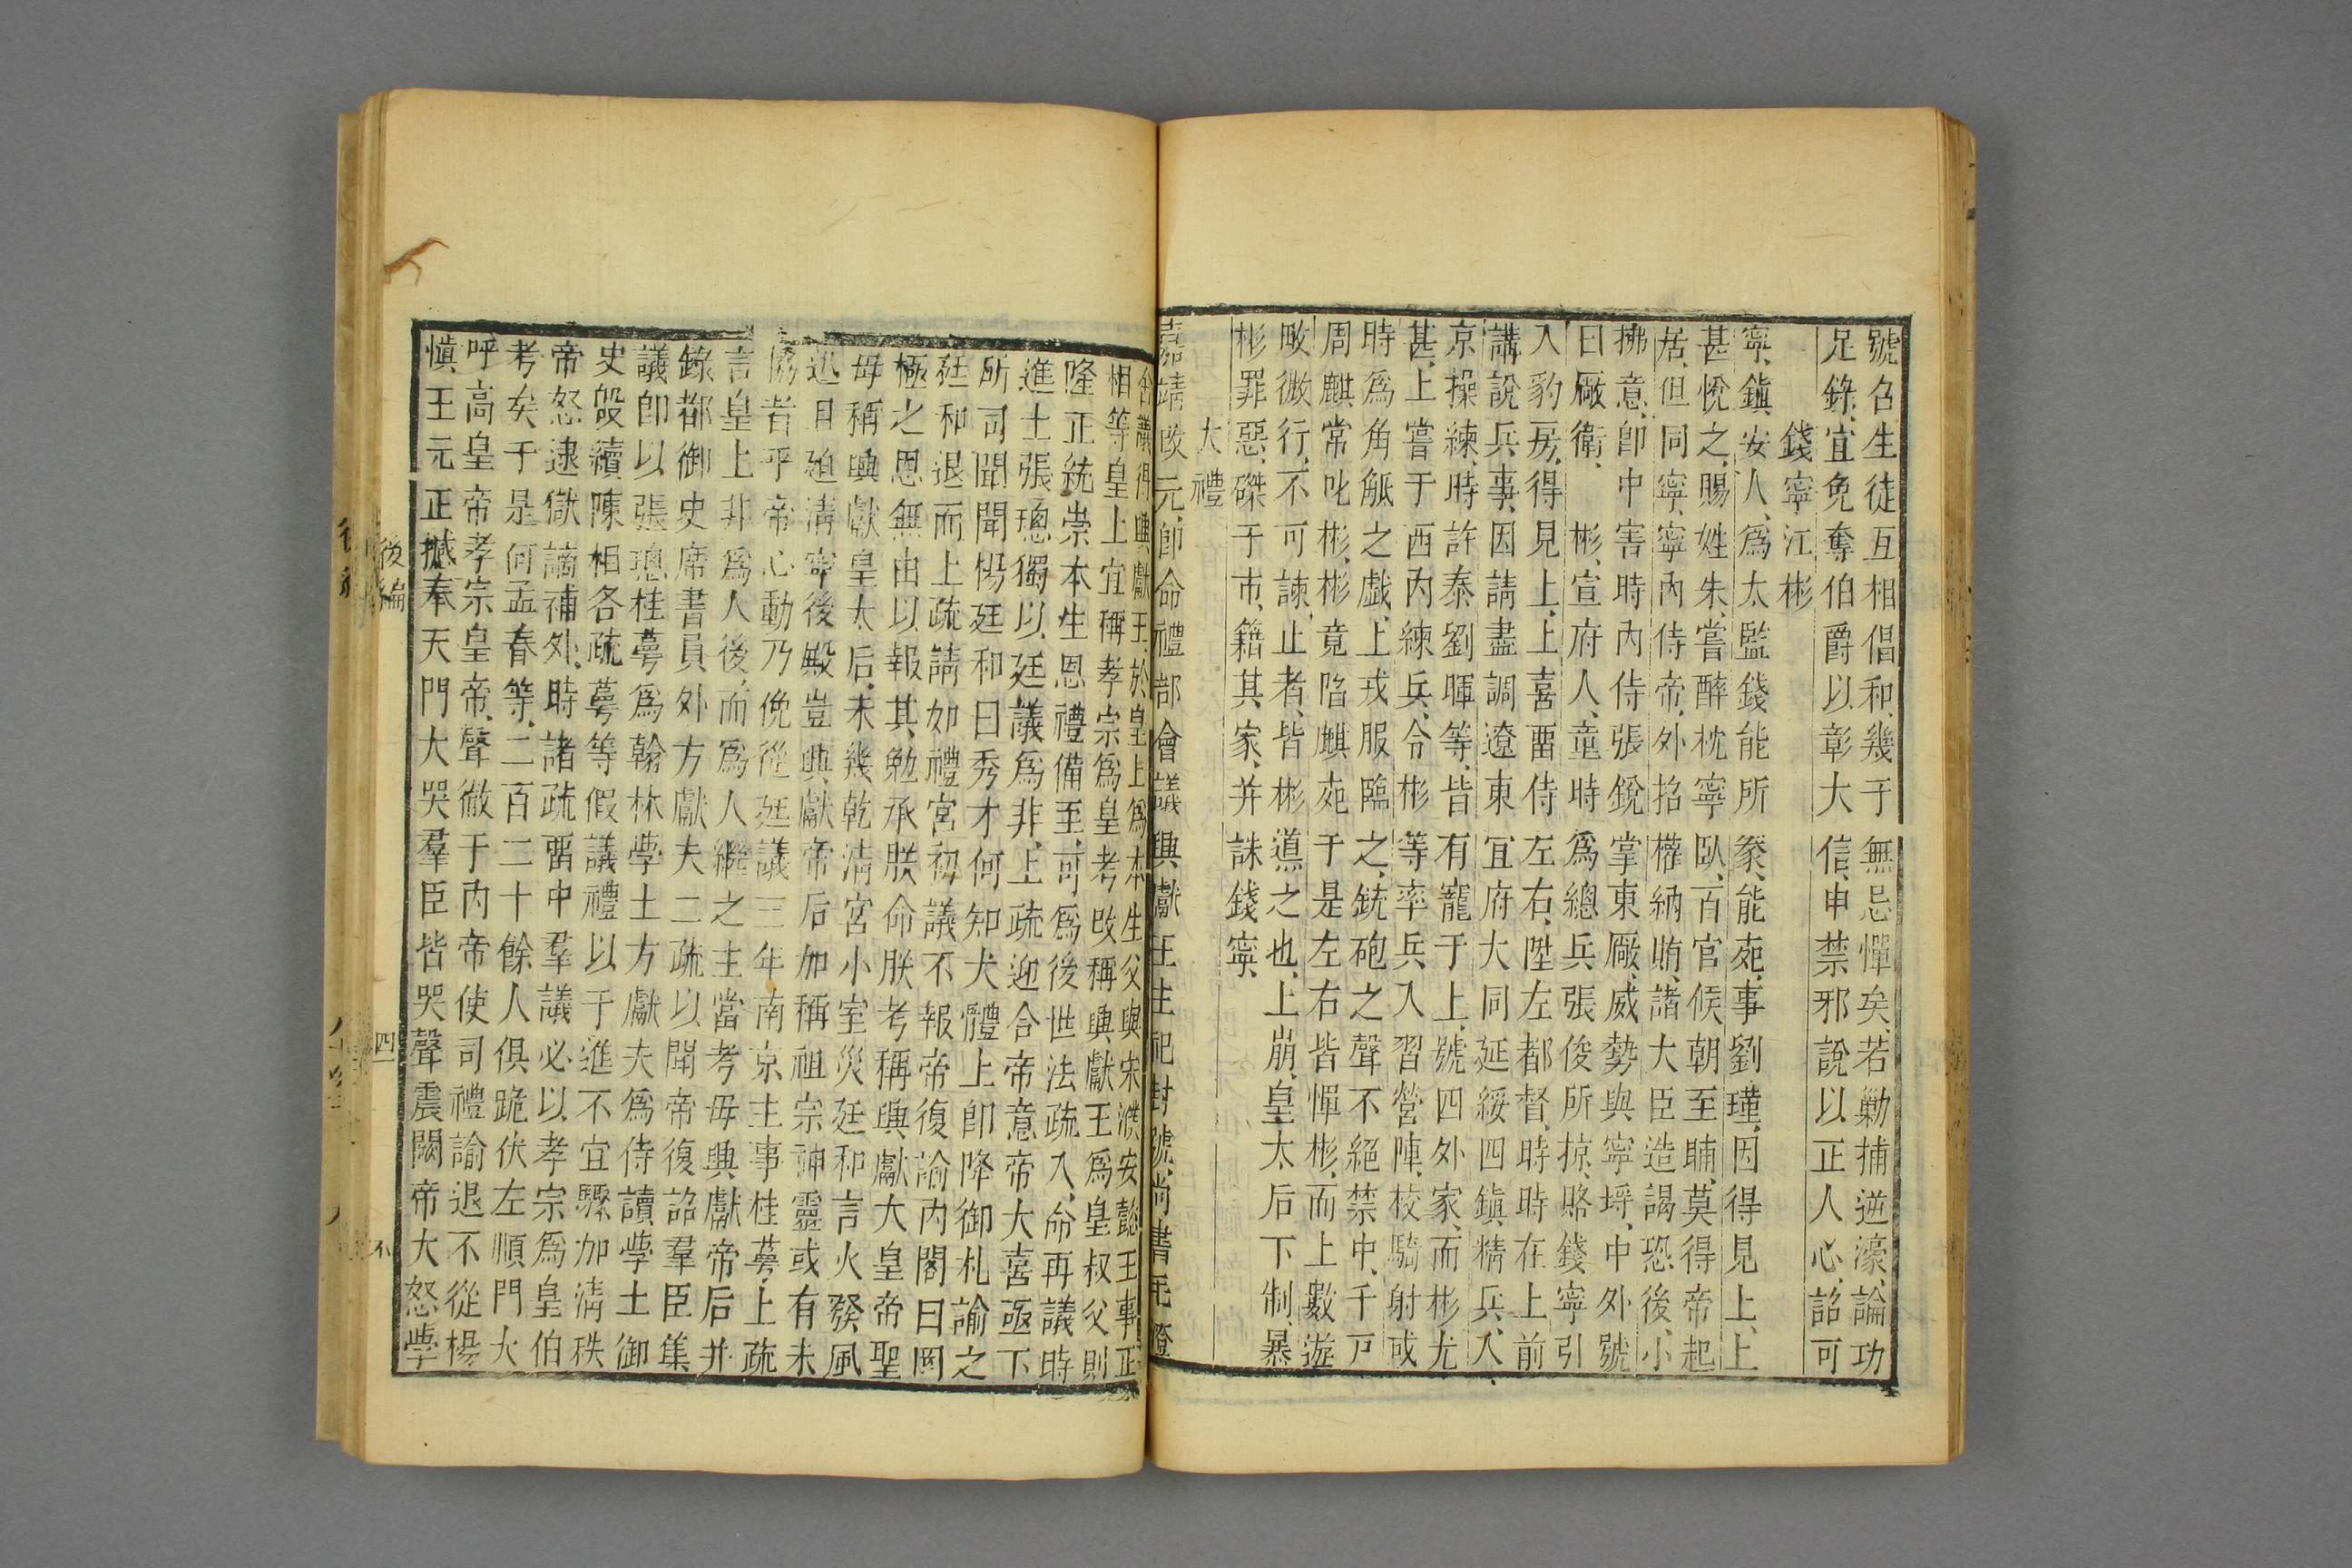 號名生徒互相倡和、幾于無忌憚矣、若勦捕逆濠、論功
足錄、宜免奪伯爵以彰大信、申禁邪說以正人心、詔可
錢寧江彬
寧、鎮安人、為太監錢能所豢、能死、事劉瑾、因得見上、上
甚悅之、賜姓朱、嘗醉枕寧臥、百官候朝至晡、莫得帝起
居、但同寧、寧內侍帝、外招權納賄、諸大臣造謁恐後、小
拂意、卽中害時內侍張銳掌東厰、威勢與寧埒、中外號
曰厰衛、彬、宣府人、童時為總兵張俊所掠、賂錢寧引
入豹房、得見上、上喜畱侍左右、陞左都督、時時在上前
講說兵事、因請盡調遼東宣府大同延綏四鎮精兵、入
京操練、時許泰劉暉等、皆有寵于上、號四外家、而彬尤
甚、上嘗于西內練兵、令彬等率兵、入習營陣、校騎射或
時爲角觝之戲、上戎服臨之、銃砲之聲不絕禁中、千戸
周麒常叱彬、彬竟陷麒死于是左右皆憚彬、而上數遊
畋微行、不可諫止者、皆彬導之也、上崩、皇太后下制、暴
彬罪惡、磔于市、籍其家、并誅錢寧、
大禮
嘉靖改元、卽命禮部會議興獻王主祀封號、尚書毛澄
會議得興獻王、於皇上為本生父與宋濮安懿王事正
相等皇上宜稱孝宗爲皇考改稱興獻王爲皇叔父則
隆正統、崇本生恩禮備至、可爲後世法疏入、命再議時
進士張璁獨以廷議爲非、上疏迎合帝意帝大喜亟下
所司聞聞楊廷和曰秀才何知大體上卽降御札諭之
廷和退而上疏請如禮官初議不報帝復諭內閣曰罔
極之恩無由以報其勉承朕命朕考稱興獻大皇帝聖
母稱興獻皇太后、未幾乾清宮小室災廷和言火發風
迅日迫清寧後殿豈興獻帝后加稱祖宗神靈或有未
協者乎帝心動乃俛從廷議三年南京主事桂萼、上疏
言皇上非爲人後、而爲人繼之主當考母興獻帝后并
錄都御史席書員外方獻夫二疏以聞帝復詔羣臣集
議卽以張璁桂萼爲翰林學士方獻夫爲侍讀學士御
史段續陳相各疏萼等假議禮以于進不宜驟加清秩
帝怒逮獄謫補外、時諸疏畱中羣議必以孝宗爲皇伯
考矣于是何孟春等、二百二十餘人俱跪伏左順門大
呼高皇帝孝宗皇帝、聲徹于內帝使司禮諭退不從楊
慎王元正撼奉天門大哭羣臣皆哭聲震闕帝大怒學
後編
四